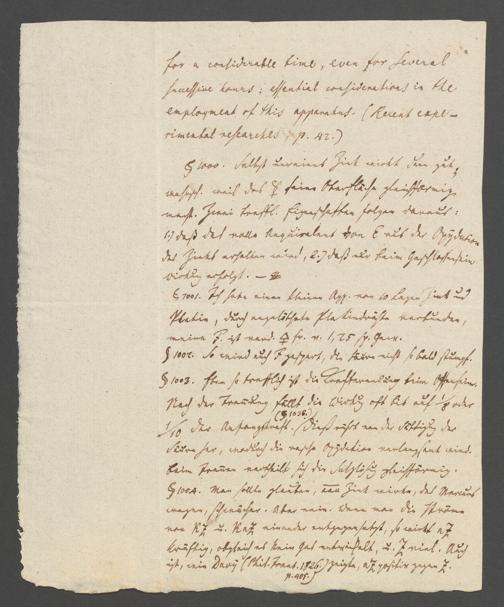 for a considerable time, even for several
successive hours: essential considerations in the
employment of this apparatus. (Recent expe-
rimental researches, p. 42.)
§ 1000. Selbst unreines Zink wirkt dann gut,
weil das ☿ seine Oberfläche gleichförmig
macht. Zwei treffl. Eigenschaften folgen daraus:
1.) daß das volle Aequivalent von E aus der Oxydation
des Zinks erhalten wird, 2.) daß nur beim Geschlossensein
Wirkung erfolgt. —
§ 1001. Ich habe einen kleinen App. von 10 Lagen Zink und
Platin, durch angelöthete Platindrähte verbunden,
meine F. ist verd. fr. v. 1,25 sp. Gew.
§ 1002. So wird auch gespart, die Säure nicht so bald stumpf.
§ 1003. Eben so trefflich ist die beim Offensein.
Nach der Trennung fällt die Wirkung oft bis auf 1/8 oder
1/10 der Anfangskraft. (§ 1036.) (Dieß rührt von der Sättigung der
Säure her, wodurch die rasche Oxydation verlangsamt wird.
Beim Trennen vertheilt sich die Salzlösung gleichförmig.
§ 1004. Man sollte glauben, das Zink wirke, des Mercurs
wegen, schwächer. Aber nein. Wenn man die Ströme
von u. einander entgegensetzt, so wirkt
kräftig, obgleich es kein Gas entwickelt, u. viel. Auch
ist, wie Davy (Phil. Trans. 1826. p. 405.) zeigte, positiv gegen Z.